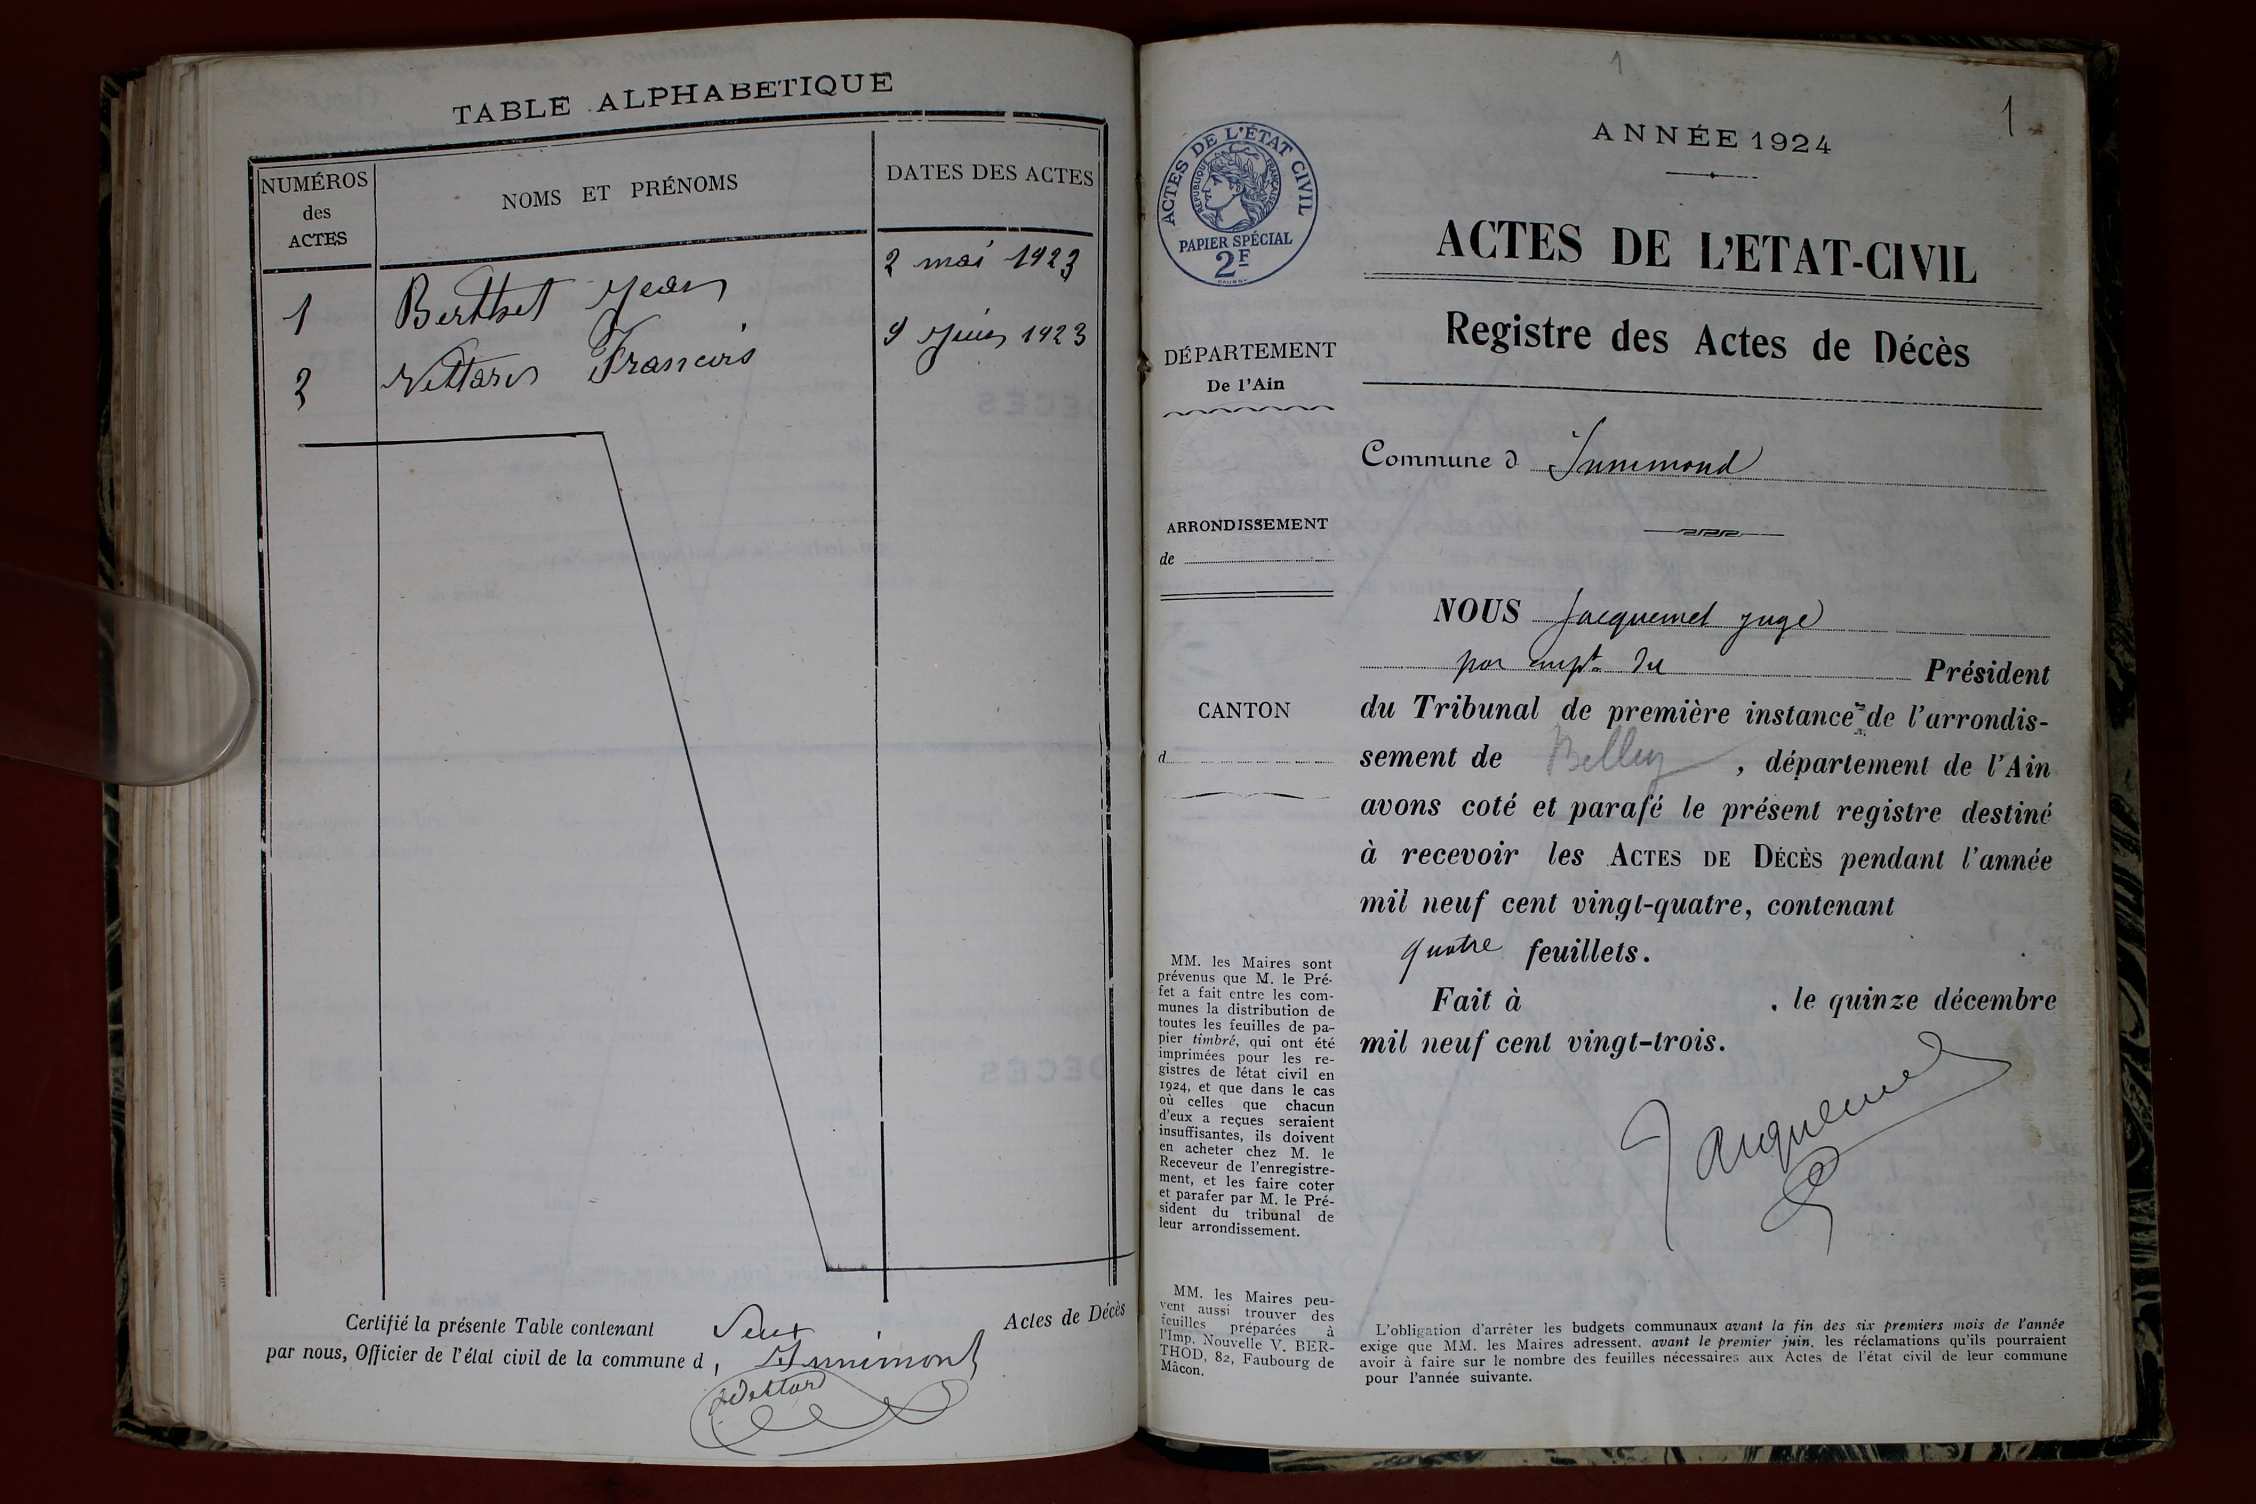 TABLE ALPHABETIQUE
NUMÉROS
des
ACTES
NOMS ET PRÉNOMS
DATES DES ACTES
1 Berthet Jean 2 mai 1923
2 François 9 Juin 1923
Certifié la présente Table contenant Deux Actes de Décès
par nous, Officier de l'état civil de la commune d'Innimont
1
1
ANNÉE 1924
ACTES DE L'ÉTAT CIVIL
RÉPUBLIQUE FRANÇAISE
PAPIER SPÉCIAL
2F
ACTES DE L'ETAT-CIVIL
Registre des Actes de Décès
DÉPARTEMENT
De l'Ain
Commune d'Innimond
ARRONDISSEMENT
de
CANTON
d
NOUS Jacquemet juge
par empt du Président
du Tribunal de première instance de l'arrondis-
sement de Belley, département de l'Ain
avons coté et parafé le présent registre destiné
à recevoir les ACTES DE DÉCÈS pendant l'année
mil neuf cent vingt-quatre, contenant
quatre feuillets.
Fait à , le quinze décembre
mil neuf cent vingt-trois.
Jacquemet
MM. les Maires sont
prévenus que M. le Pré-
fet a fait entre les com-
munes la distribution de
toutes les feuilles de pa-
pier timbré, qui ont été
imprimées pour les re-
gistres de l'état civil en
1924, et que dans le cas
où celles que chacun
d'eux a reçues seraient
insuffisantes, ils doivent
en acheter chez M. le
Receveur de l'enregistre-
ment, et les faire coter
et parafer par M. le Pré-
sident du tribunal de
leur arrondissement.
MM. les Maires peu-
vent aussi trouver des
feuilles préparées à
l'Imp. Nouvelle V. BER-
THOD, 82, Faubourg de
Mâcon.
L'obligation d'arrêter les budgets communaux avant la fin des six premiers mois de l'année
exige que MM. les Maires adressent, avant le premier juin, les réclamations qu'ils pourraient
avoir à faire sur le nombre des feuilles nécessaires aux Actes de l'état civil de leur commune
pour l'année suivante.